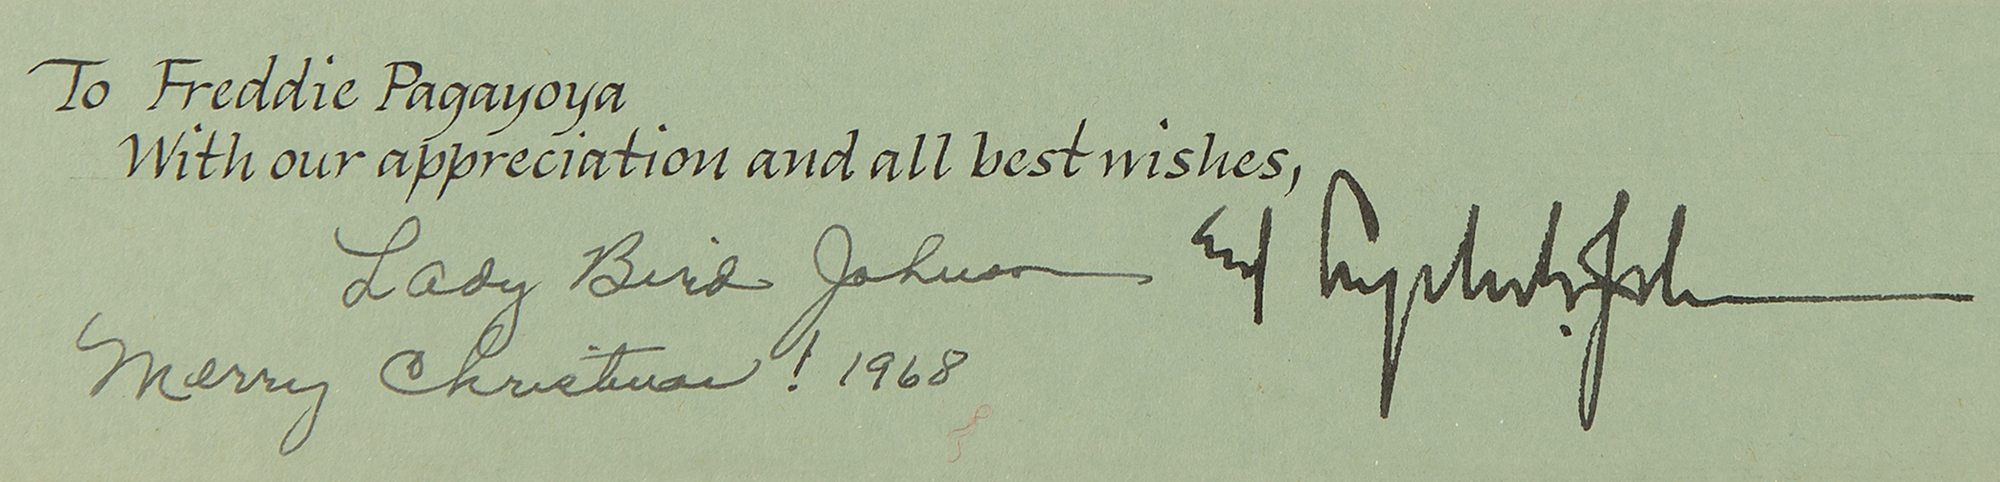 To Freddie Pagayoya
With our appreciation and all best wishes,
Lady Bird Johnson and Lyndon B. Johnson
Merry Christmas! 1968